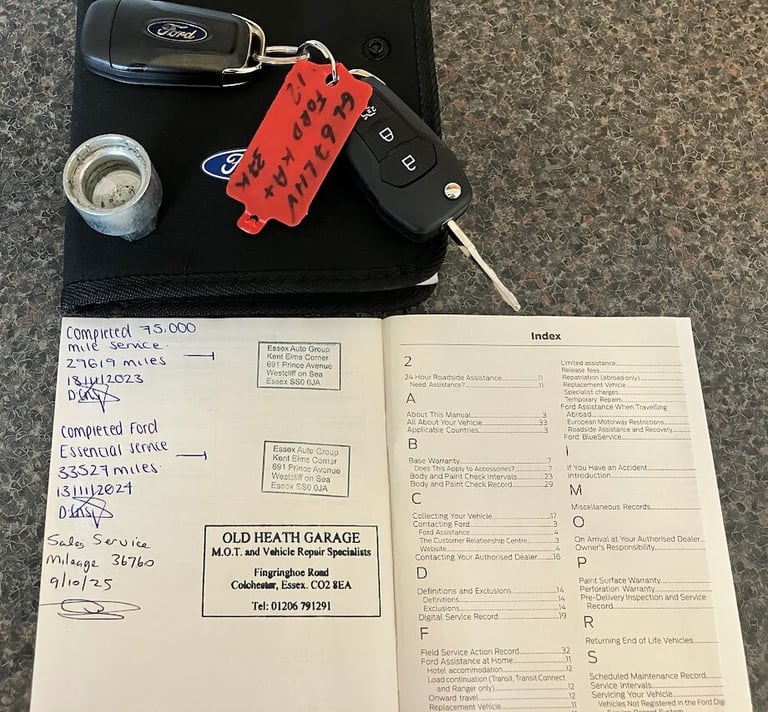 Ford
GL67LHV
FORD KA+
1.2 33K
Completed 75,000
mile service.
27619 miles
13/11/2023
Essex Auto Group
Kent Elms Corner
691 Prince Avenue
Westcliff on Sea
Essex SS0 0JA
Completed Ford
Essential service
33527 miles.
13/11/2024
Essex Auto Group
Kent Elms Corner
691 Prince Avenue
Westcliff on Sea
Essex SS0 0JA
Sales Service
Mileage 36760
9/10/25
OLD HEATH GARAGE
M.O.T. and Vehicle Repair Specialists
Fingringhoe Road
Colchester, Essex. CO2 8EA
Tel: 01206 791291
Index
2
24 Hour Roadside Assistance 11
Need Assistance? 11
A
About This Manual 3
All About Your Vehicle 33
Applicable Countries 3
B
Base Warranty 7
Does This Apply to Accessories? 7
Body and Paint Check Intervals 23
Body and Paint Check Record 29
C
Collecting Your Vehicle 17
Contacting Ford 3
Ford Assistance 4
The Customer Relationship Centre 3
Website 4
Contacting Your Authorised Dealer 16
D
Definitions and Exclusions 14
Definitions 14
Exclusions 14
Digital Service Record 19
F
Field Service Action Record 32
Ford Assistance at Home 11
Hotel accommodation 12
Load continuation (Transit, Transit Connect
and Ranger only) 12
Onward travel 12
Replacement Vehicle 11
Limited assistance
Release fees
Repatriation (abroad only)
Replacement Vehicle
Specialist charges
Temporary Repairs
Ford Assistance When Travelling
Abroad
European Motorway Restrictions
Roadside Assistance and Recovery
Ford BlueService
I
If You Have an Accident
Introduction
M
Miscellaneous Records
O
On Arrival at Your Authorised Dealer
Owner's Responsibility
P
Paint Surface Warranty
Perforation Warranty
Pre-Delivery Inspection and Service
Record
R
Returning End of Life Vehicles
S
Scheduled Maintenance Record
Service Intervals
Servicing Your Vehicle
Vehicles Not Registered in the Ford Digi